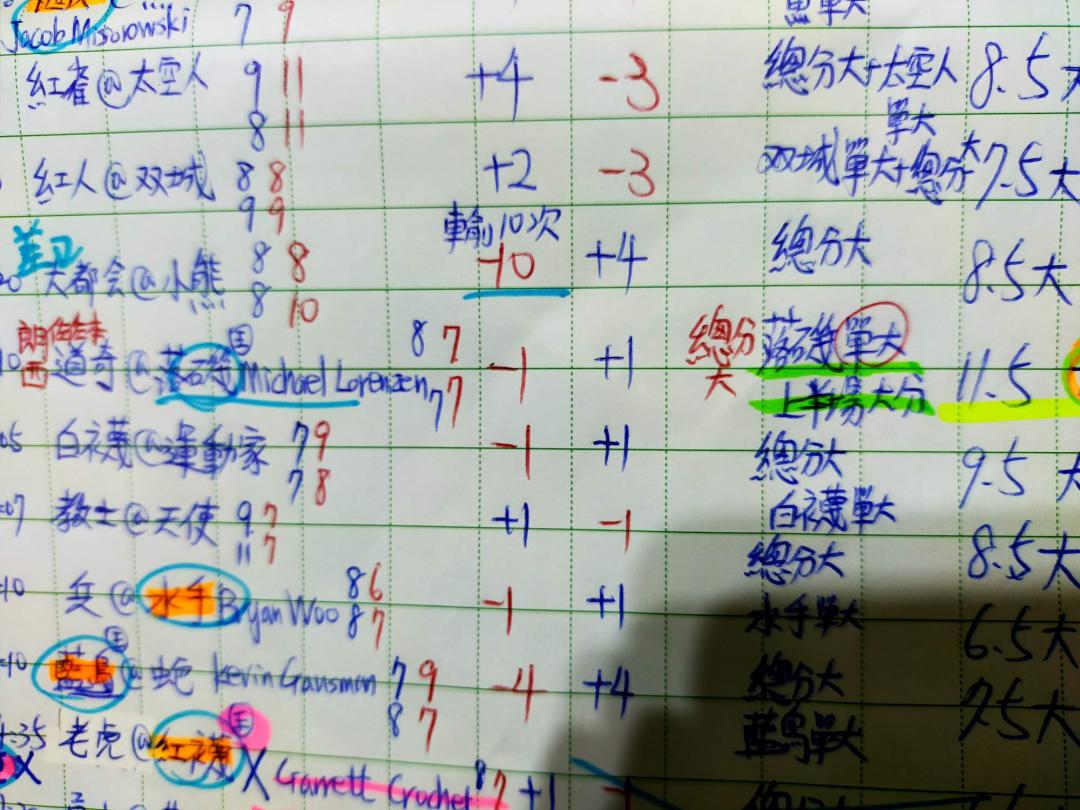 Jacob Misiorowski 7 9
單大
紅雀@太空人 9 11 +4 -3 總分大+太空人 8.5大
8 11 單大
紅人@双城 8 8 +2 -3 双城單大+總分大 7.5大
9 9
輸10次
大都会@小熊 8 8 -10 +4 總分大 8.5大
8 10
西 道奇@落磯 国 Michael Lorenzen 8 7 -1 +1 總分大 落磯單大 11.5
77 上半場大分
05 白襪@運動家 7 9 -1 +1 總分大 9.5大
7 8 白襪單大
:07 教士@天使 9 7 +1 -1 總分大 8.5大
11 7
:10 兵@水手 Bryan Woo 8 6 -1 +1 水手單大 6.5大
8 7
:10 藍鳥@蛇 Kevin Gausman 7 9 -4 +4 總分大 7.5大
8 7 藍鳥單大
4:35 老虎@紅襪 X Garrett Crochet 8 7 +1
X